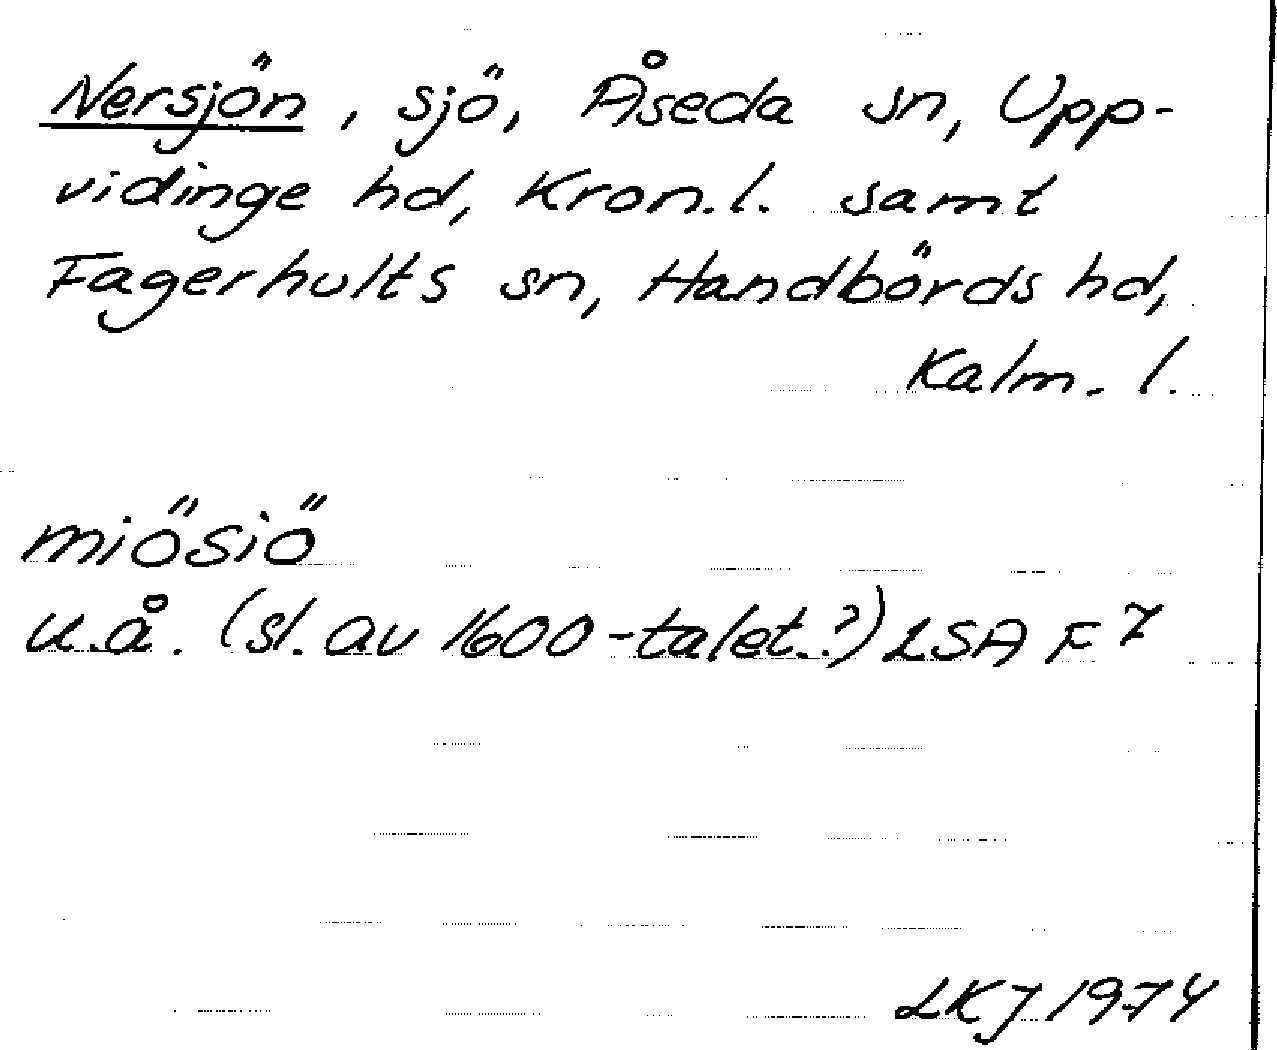 Nersjön, sjö, Åseda sn, Upp-
vidinge hd, Kron.l. samt
Fagerhults sn, Handbörds hd,
Kalm. l.
miösiö
u.å. (sl. av 1600-talet.?) LSA F 7
LKJ 1974